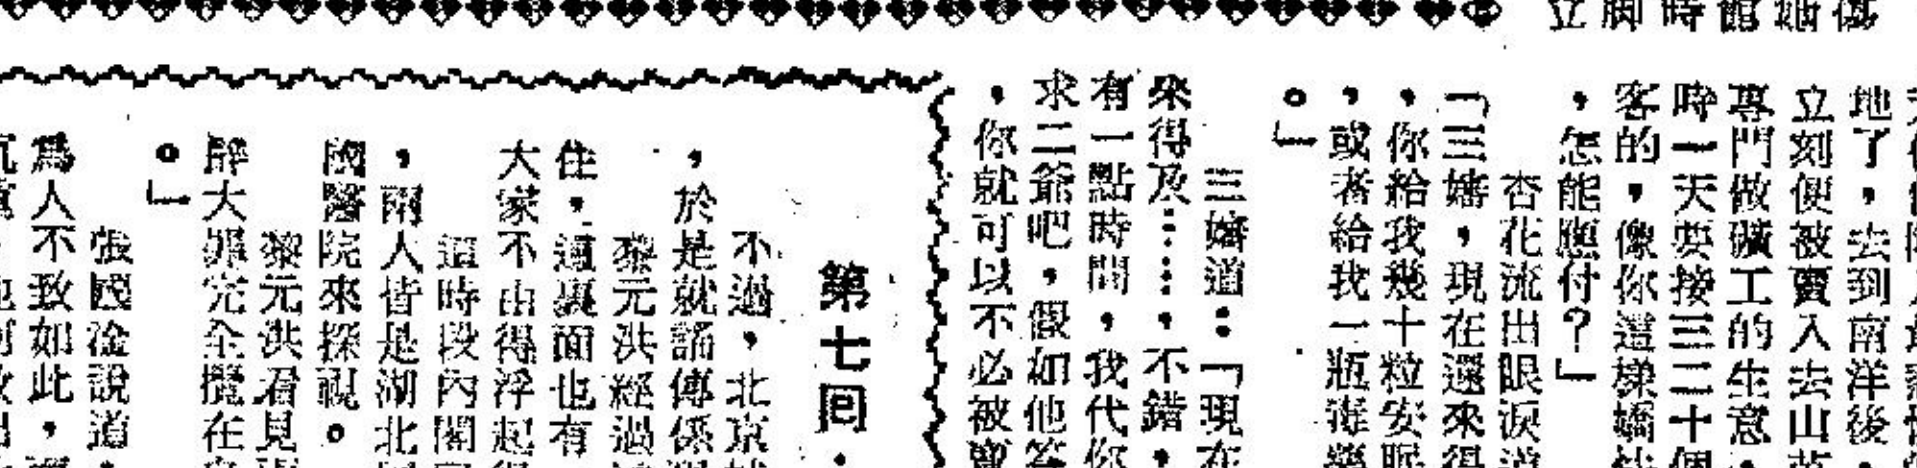 立脚時館
地了，去到南洋後，
立刻便被賣入去山
專門做礦工的生意，
時一天要接三二十個
客的，像你這樣嬌
，怎能應付？」
杏花流出眼淚道
「三嬸，現在還來得
，你給我幾十粒安眠
，或者給我一瓶
。」
三嬸道：「現在
來得及……，不錯，
有一點時間，我代你
求二爺吧，假如他答
，你就可以不必被賣
第七回．
不過，北京
，於是就誦傳係
黎元洪經過
住，這裏面也有
大家不由得浮起
這時段內閣
，兩人皆是湖北
國醫院來探視。
黎元洪看見
辭大罪完全攬在
。」
張國淦說道，
爲人不致如此，